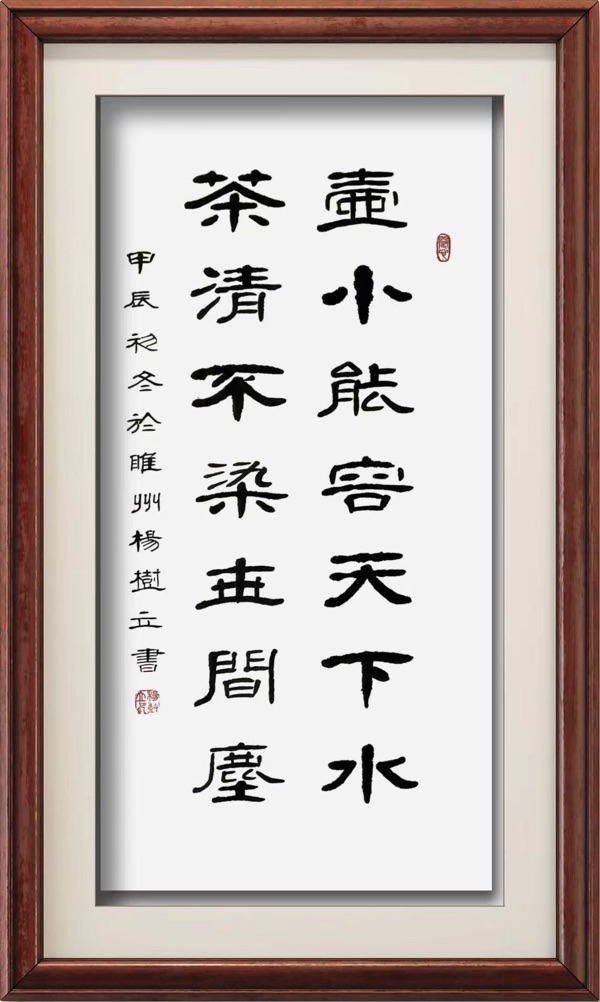 壺小能容天下水
茶清不染世間塵
甲辰初冬於睢州楊樹立書